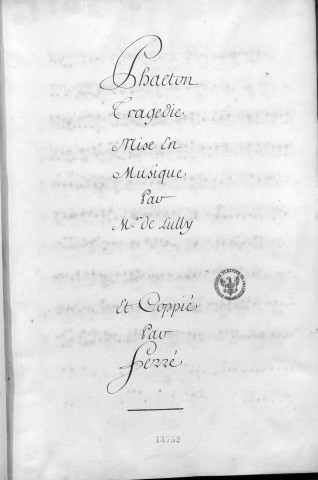 Phaeton
Tragedie
Mise En
Musique
Par
Mr. de Lully
Et Coppié
Par
Ferré
13752